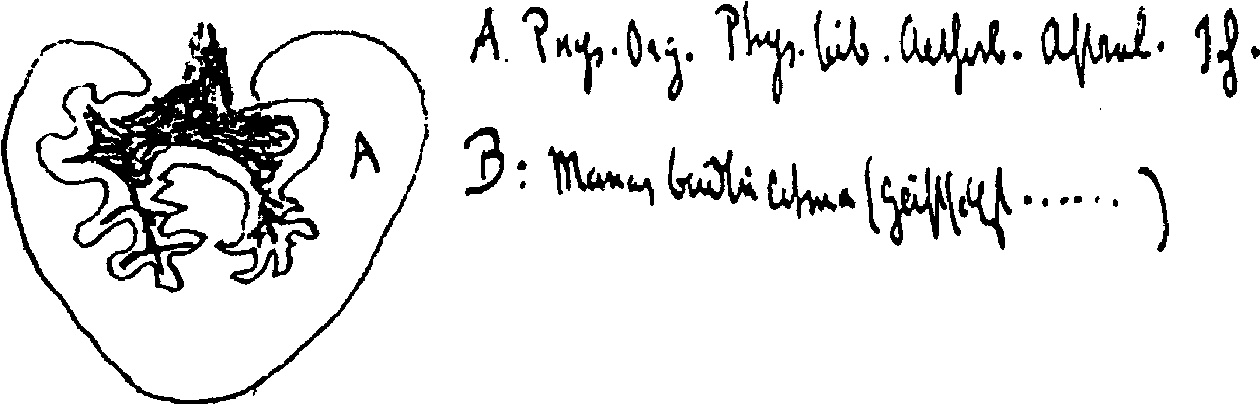 A. Phys. Org. Phys. Leib. Aetherl. Astral. Ich.
B: Manas Budhi Atma (Geistselbst ...... )
A